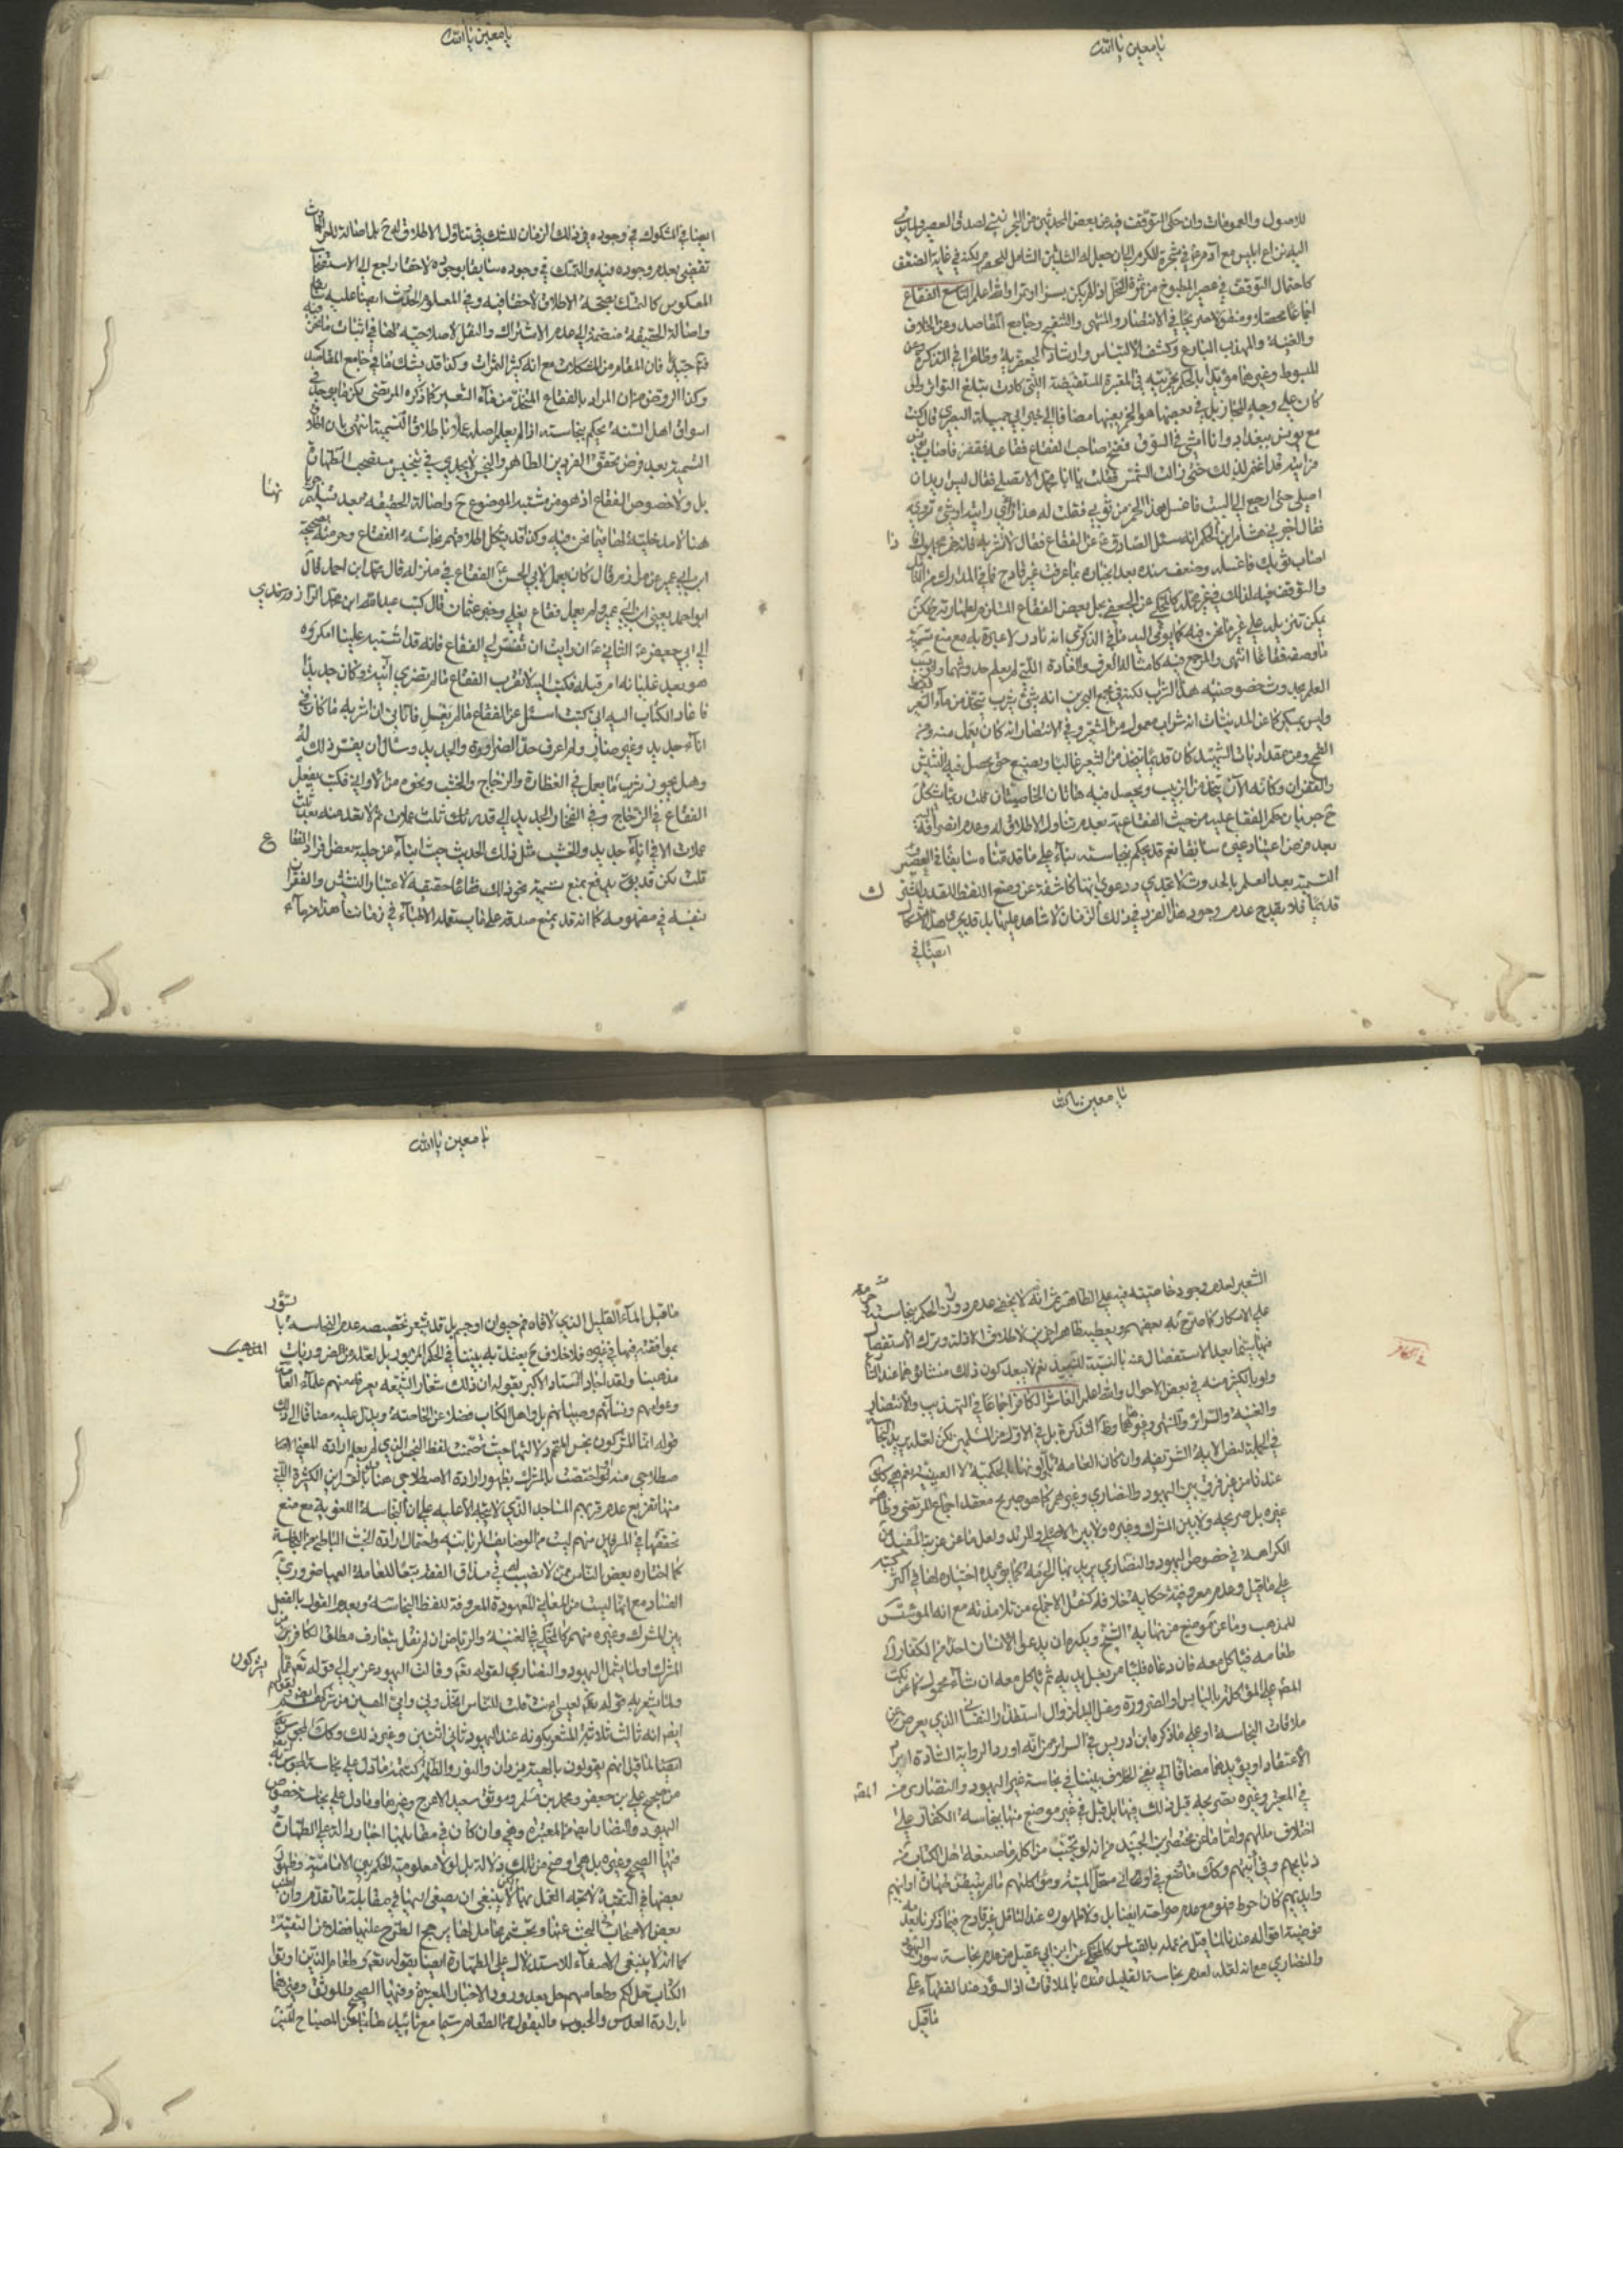 يا معين يا الله
للاصول والعمومات وان حكى التوقف فيه عن بعض المحدثين من التحريتي لصدق العصير
اليه نزاع ابليس مع آدم ع في شجرة الكرم الى ان جعل له الثلثين الشامل للحصرم لكنه في غاية الضعف
كاحتمال التوقف في عصير المطبوخ من تمرة النخل اذا لم يكن بسرا او تمرا والله اعلم التاسع الفقاع
اجماعا محصلا ومنقولا صريحا في الانتصار والمنتهى والتنقيح وجامع المقاصد وعن الخلاف
والغنية والمهذب البارع وكشف الالتباس وارشاد الجعفرية وظاهرا في التذكرة وعن
المبسوط وغيرهما مؤيدا بالحكم بخمريته في المعتبرة المستفيضة التي كادت تبلغ التواتر وان
كان على وجه المجاز بل في بعضها هو الخمر بعينها مضافا الى خبر ابي جميلة البصري قال كنت
مع يونس ببغداد وانا امشي في السوق ففتح صاحب الفقاع فقاعه فقفز فاصاب
فرايته قد اغتم لذلك حتى زالت الشمس فقلت يا ابا محمد الا تصلي فقال ليس اريد ان
اصلي حتى ارجع الى البيت فاغسل هذا الخمر من ثوبي فقلت له هذا راي رايته او شيء ترويه
فقال اخبرني هشام ابن الحكم انه سئل الصادق ع عن الفقاع فقال لا تشربه فانه خمر مجهول فاذا
اصاب ثوبك فاغسله وضعف سنده بعد انجباره بما عرفت غير قادح فما في المدارك من
والتوقف فيه لذلك في غير محله كالمحكي عن الجعفي بحل بعض الفقاع
يمكن تنزيله على غير ما نحن فيه كما يومي اليه ما في الذكرى انه نادر لا عبرة به مع منع تسمية
ما وصفه فقاعا انتهى والمرجع فيه كامثاله الى العرف والعادة اللتي لم يعلم حدوثهما
العلم بحدوث خصوصيته هذا الشراب لكنه في مجمع البحرين انه شيء يشرب يتخذ من ماء الشعير فقط
وليس بمسكر كما عن المدنيات انه شراب معمول من الشعير وفي الانتصار انه كان يعمل منه ومن
القمح وعن مقداديات الشهيد كان قديما يتخذ من الشعير غالبا ويصنع حتى يحصل فيه النشيش
والقفزان وكانه الآن يتخذ من الزبيب ويحصل فيه هاتان الخاصيتان قلت ربما يشكل
ح جريان حكم الفقاع عليه من حيث الفقاعية بعدم تناول الاطلاق له وعدم انصرافه
بعد فرض اعتياد غيره سابقا نعم قد يحكم بنجاسته بناء على ما قدمناه سابقا في العصير
التسمية بعد العلم بالحدوث لا تجدي ودعوى انها كاشفة عن وضع اللفظ للقدر المشترك
قديما فلا يقدح عدم وجود هذا الفرد في ذلك الزمان لا شاهد عليها بل قد يجري هذا
ايضا في
يا معين يا الله
ايضا في المشكوك في وجوده في ذلك الزمان للشك في تناول الاطلاق له ح بل اصالة
تقضي بعدم وجوده فيه والتمسك في وجوده سابقا بوجوده لاحقا راجع الى الاستصحاب
المعكوس كالتمسك بصحة الاطلاق لاحقا فيه وفي المعلوم الحدوث ايضا عليه سابقا
واصالة الحقيقة منضمة الى عدم الاشتراك والنقل لا صلاحية لها في اثبات ما نحن فيه
فتأمل جيدا فان المقام من المشكلات مع انه كثير الثمرات وكذا قد يشك فيما في جامع المقاصد
وكذا الروض من ان المراد بالفقاع المتخذ من ماء الشعير كما ذكره المرتضى لكن ما يوجد في
اسواق اهل السنة يحكم بنجاسته اذا لم يعلم اصله عملا باطلاق التسمية انتهى بان اطلاق
التسمية بعد فرض تحقق الفردين الطاهر والنجس لا يجدي في تنجيس مستصحب الطهارة
بل ولا خصوص الفقاع اذ هو من مشتبه الموضوع ح واصالة الحقيقة بعد تسليم جريانها
هنا لا مدخلية لها فيما نحن فيه وكذا قد يشكل اطلاقهم نجاسة الفقاع وحرمته بصحيحة
ابن ابي عمير عن مرازم قال كان يعمل لابي الحسن ع الفقاع في منزله قال محمد ابن احمد قال
ابو احمد يعني ابن ابي عمير ولم يعمل فقاع يغلي وخبر عثمان قال كتب عبد الله ابن محمد الرازي
الى ابي جعفر ع الثاني ع ان رايت ان تفسر لي الفقاع فانه قد اشتبه علينا امكروه
هو بعد غليانه ام قبله فكتب اليه لا تقرب الفقاع ما لم تضري آنيته وكان جديدا
فاعاد الكتاب اليه اني كتبت اسئل عن الفقاع ما لم يغل فاتاني ان اشربه ما كان في
اناء جديد وغير ضاري ولم اعرف حد الضراوة والجديد وسال ان يفسر ذلك له
وهل يجوز شرب ما يعمل في الغضارة والزجاج والخشب ونحوه من الاواني فكتب يفعل
الفقاع في الزجاج وفي الفخار الجديد الى قدر ثلث عملات ثم لا تعد منه بعد ثلث
عملات الا في اناء جديد والخشب مثل ذلك الحديث حيث انباء عن حلية بعض افراد الفقاع
قلت لكن قد يق يدفع بمنع تسمية نحو ذلك فقاعا حقيقة لاعتبار النشيش والقفزان
بنفسه في مفهومه كما انه قد يمنع صدقه على ما يستعمله الاطباء في زماننا هذا من ماء
يا معين يا الله
الشعير لعدم وجود خاصيته فيه على الظاهر ثم انه لا يخفى عدم دوران الحكم بنجاسته وحرمته
على الاسكار كما صرح به بعضهم ويعطيه ظاهر اخرين لاطلاق الادلة وترك الاستفصال
فيها سيما بعد الاستفصال منه بالنسبة للنبيذ نعم لا يبعد كون ذلك منشاؤهما عند الشارع
ولو بالكثير منه في بعض الاحوال والله اعلم العاشر الكافر اجماعا في التهذيب والانتصار
والغنية والسرائر والمنتهى وغيرها وظاهر التذكرة بل في الاول من المسلمين لكن لعله يريد النجاسة
في الجملة لنص الآية الشريفة وان كان العامة ياولونها بالحكمية لا العينية نعم هي كذلك
عندنا من غير فرق بين اليهود والنصارى وغيرهم كما هو صريح معقد اجماع المرتضى وظاهر
غيره بل صريحه ولا بين المشرك وغيره ولا بين الاصلي والمرتد ولعل ما عن غرية المفيد من
الكراهة في خصوص اليهود والنصارى يريد بها الحرمة كما يؤيده اختياره لها في اكثر كتبه
على ما قيل وعدم معروفية حكاية خلافه كنقل الاجماع من تلامذته مع انه المؤسس
للمذهب وما عن موضع من نهاية الشيخ ويكره ان يدعو الانسان احدا من الكفار الى
طعامه فيأكل معه فان دعاه فليأمره بغسل يديه ثم ياكل معه ان شاء محمول كما عن نكت
المص على المواكلة باليابس او الضرورة وغسل اليد لزوال استقذار النفس الذي يعرض من
ملاقات النجاسة او على ما ذكره ابن ادريس في السرائر من انه اوردا لرواية الشاذة ايرادا لا
الاعتقاد او يؤيدهما مضافا الى نفي الخلاف بيننا في نجاسة غير اليهود والنصارى من المص
في المعتبر وغيره تصريحه قبل ذلك فيها بل قبل في غير موضع منها بنجاسة الكفار على
اختلاف مللهم واما ما عن مختصر ابن الجنيد من انه لو تجنب من اكل ما صنعه اهل الكتاب من
ذبايحهم وفي آنيتهم وكذلك ما صنع في اواني مستحل الميتة ومواكلتهم ما لم يتيقن طهارة اوانيهم
وايديهم كان احوط فهو مع عدم صراحته ايضا بل ولا ظهوره عند التامل غير قادح فيما ذكرنا بعد
معروضية اقواله عندنا لما قيل من عمله بالقياس كالمحكي عن ابن ابي عقيل من عدم نجاسة سؤر اليهود
والنصارى مع انه لعله لعدم نجاسة القليل عنده بالملاقات اذ السؤر عند الفقهاء على
ما قيل
في الكافر
يا معين يا الله
ما قيل الماء القليل الذي لاقاه فم حيوان او جسمه بل قد يشعر تخصيصه عدم النجاسة بالسؤر
بموافقته فيها في غيره فلا خلاف ح يعتد به بيننا في الحكم المزبور بل لعله من ضروريات المذهب
مذهبنا ولقد اجاد الاستاد الاكبر بقوله ان ذلك شعار الشيعة يعرفه منهم علماء العامة
وعوامهم ونساؤهم وصبيانهم بل واهل الكتاب فضلا عن الخاصة ويدل عليه مضافا الى ذلك
قوله انما المشركون نجس لتتم دلالتها حيث تضمنت لفظ النجس الذي لم يعلم ارادة المعنى الا
صطلاحي منه لو اختصت بالمشرك بظهور ارادة الاصطلاحي هنا بالقراين الكثيرة اللتي
منها تفريع عدم قربهم المساجد الذي لا يتجه الا عليه على ان النجاسة اللغوية مع منع
تحققها في المترفين منهم ليست من الوضايف الربانية واحتمال ارادة الخبث الباطني من النجاسة
كما اختاره بعض الناس ممن لا نصيب له في مذاق الفقه تبعا للعامة العمياء ضروري
الفساد مع انها ليست من المعاني المعهودة المعروفة للفظ النجاسة وبعدم القول بالفصل
بين المشرك وغيره منهم كالمحكي في الغنية والرياض ان لم نقل بتعارف مطلق الكافر من
المشرك او لما يشمل اليهود والنصارى لقوله تعه وقالت اليهود عزير الى قوله تعه عما يشركون
ولما يشعر به قوله تعه لعيسى ءانت قلت للناس اتخذوني وامي الهين من شركهم ولقولهم
ايض انه ثالث ثلاثة المشعر بكونه عند اليهود ثاني اثنين وغير ذلك وكذلك المجوس
ايضا لما قيل انهم يقولون بالهية يزدان والنور والظلمة كتتمة ما دل على نجاسة المجوس ايض
من صحيح علي بن جعفر ومحمد بن مسلم وموثق سعيد الاعرج وغيرها وما دل على نجاسة خصوص
اليهود والنصارى ايض من المعتبرة وهي وان كان في مقابلها اخبار دالة على الطهارة
فيها الصحيح وغيره بل هي اوضح من تلك دلالة بل لولا معلومية الحكم بين الامامية وظهور
بعضها في التقية لاتجه العمل بها لكن لا ينبغي ان يصغى اليها في مقابلة ما تقدم وان اطنب
بعض الاصحاب في البحث عنها وتجشم محامل لها يرجح الطرح عليها فضلا عن التقية
كما انه لا ينبغي الاصغاء للاستدلال على الطهارة ايضا بقوله تعه وطعام الذين اوتوا
الكتاب حل لكم وطعامهم حل بعد ورود الاخبار المعتبرة وفيها الصحيح والموثق وغيرهما
بارادة العدس والحبوب والبقول من الطعام سيما مع تاييدها بما عن المصباح المنير